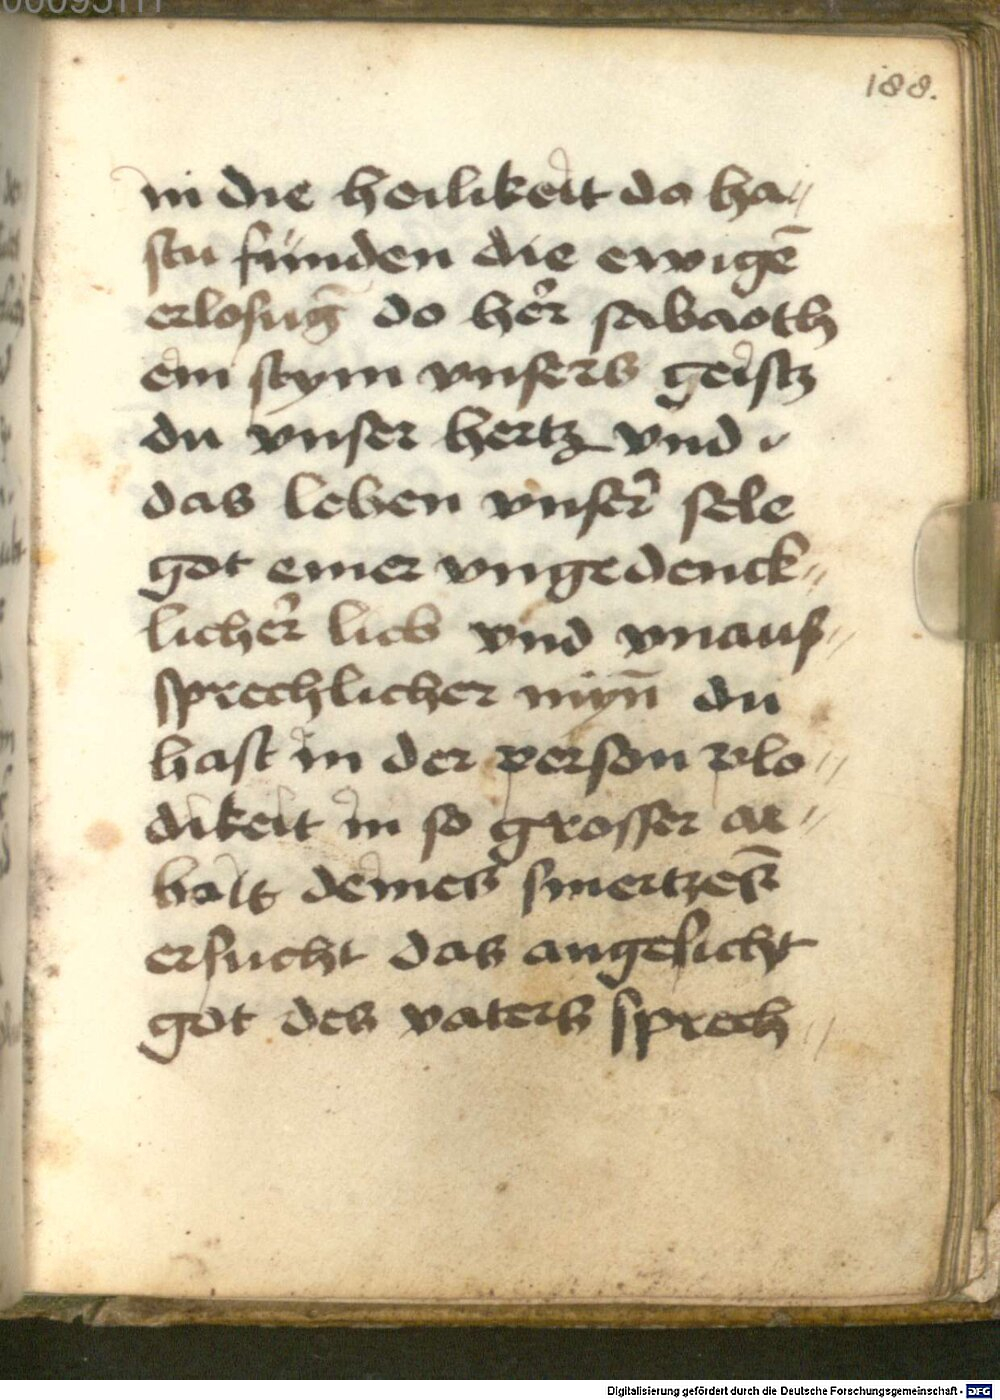 188.
in die heilikeit do ha-
stu funden die ewigē
erlosūg do her sabaoth
ein stym vnsers geistz
du vnser hertz vnd
das leben vnser sele
got einer vngedenck-
licher lieb vnd vnauß-
sprechlicher myn̄ du
hast in der person
dikeit in so grosser ar-
deines smertzes
ersucht das angesicht
got des vaters sprech-
Digitalisierung gefördert durch die Deutsche Forschungsgemeinschaft - DFG